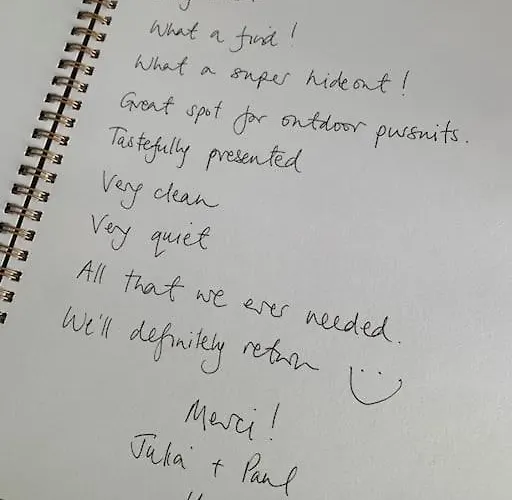 What a find!
What a super hideout!
Great spot for outdoor pursuits.
Tastefully presented
Very clean
Very quiet
All that we ever needed.
We'll definitely return
Merci!
Julia + Paul